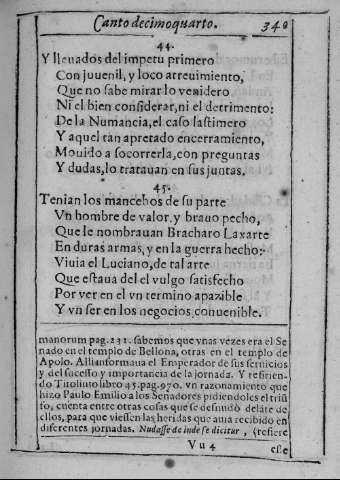 Canto decimoquarto. 340
44.
Y lleuados del impetu primero
Con juuenil, y loco atreuimiento,
Que no sabe mirar lo venidero
Ni el bien considerar, ni el detrimento:
De la Numancia, el caso lastimero
Y aquel tan apretado encerramiento,
Mouido a socorrerla, con preguntas
Y dudas, lo tratauan en sus juntas.
45.
Tenian los mancebos de su parte
Vn hombre de valor, y brauo pecho,
Que le nombrauan Bracharo Laxarte
En duras armas, y en la guerra hecho:
Viuia el Luciano, de tal arte
Que estaua del el vulgo satisfecho
Por ver en el vn termino apazible
Y vn ser en los negocios, conuenible.
manorum pag. 232. sabemos que vnas vezes era el Se
nado en el templo de Bellona, otras en el templo de
Apolo. Alli informaua el Emperador de sus seruicios
y del sucesso y importancia de la jornada. Y refirien-
do Titoliuto libro 45. pag. 970. vn razonamiento que
hizo Paulo Emilio a los Senadores pidiendoles el triũ
fo, cuenta entre otras cosas que se desnudò delãte de
ellos, para que viessen las heridas que auia recebido en
diferentes jornadas. Nudasse deinde se dicitur, (refiere
Vu 4 esse